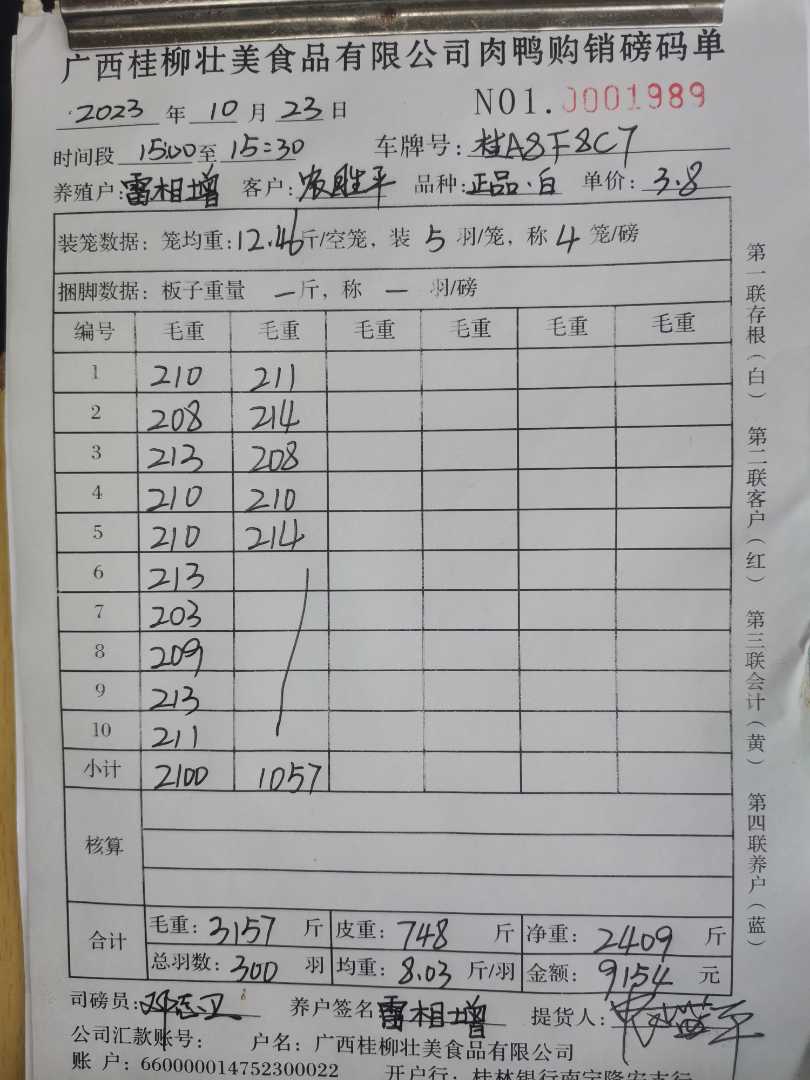 广西桂柳壮美食品有限公司肉鸭购销磅码单
2023 年 10 月 23 日 NO1. 0001989
时间段 15:00 至 15:30 车牌号: 桂A8F8C7
养殖户: 雷相增 客户: 农胜平 品种: 正品.白 单价: 3.8
装笼数据: 笼均重: 12.46 斤/空笼, 装 5 羽/笼, 称 4 笼/磅
捆脚数据: 板子重量 一 斤, 称 一 羽/磅
编号 毛重 毛重 毛重 毛重 毛重 毛重
1 210 211
2 208 214
3 213 208
4 210 210
5 210 214
6 213
7 203
8 209
9 213
10 211
小计 2100 1057
核算
合计 毛重: 3157 斤 皮重: 748 斤 净重: 2409 斤
总羽数: 300 羽 均重: 8.03 斤/羽 金额: 9154 元
司磅员: 养户签名: 雷相增 提货人:
公司汇款账号: 户名: 广西桂柳壮美食品有限公司
账 户: 660000014752300022 开户行: 桂林银行南宁隆安支行
第一联存根(白) 第二联客户(红) 第三联会计(黄) 第四联养户(蓝)